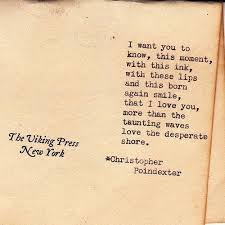 I want you to
know, this moment,
with this ink,
with these lips
and this born
again smile,
that I love you,
more than the
taunting waves
love the desperate
shore.
*Christopher
Poindexter
The Viking Press
New York